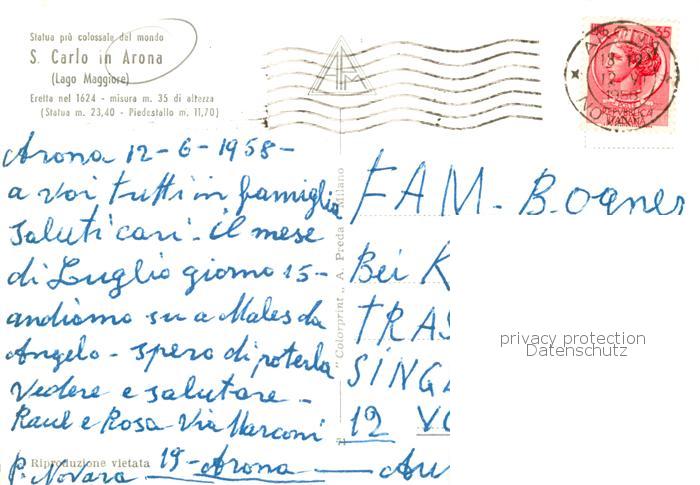 Statua più colossale del mondo
S. Carlo in Arona
(Lago Maggiore)
Eretta nel 1624 - misura m. 35 di altezza
(Statua m. 23,40 - Piedestallo m. 11,70)
35
ARONA
12 VI
1958
Arona 12-6-1958-
a voi tutti in famiglia
Saluti cari - il mese
di Luglio giorno 15-
andiamo su a Males da
Angelo - spero di poterla
vedere e salutare -
Raul e Rosa Via Marconi
P. Novara 19 - Arona
"Colorprint" A. Preda - Milano
Riproduzione vietata
FAM. B.
Bei K
TRAS
SING
12 VO
privacy protection
Datenschutz